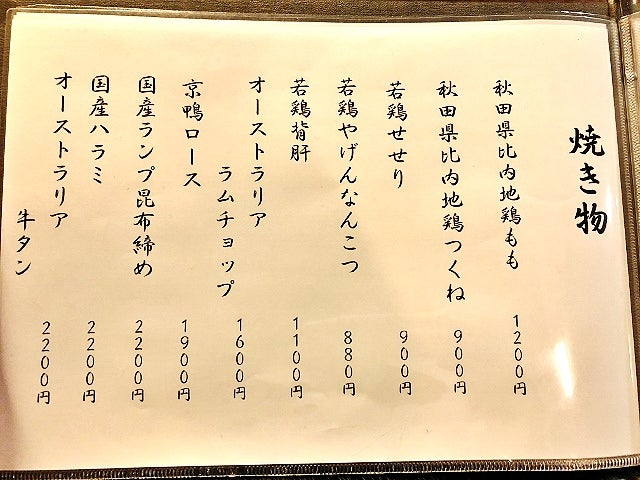 焼き物
秋田県比内地鶏もも 1200円
秋田県比内地鶏つくね 900円
若鶏せせり 900円
若鶏やげんなんこつ 880円
若鶏背肝 1100円
オーストラリア
ラムチョップ 1600円
京鴨ロース 1900円
国産ランプ昆布締め 2200円
国産ハラミ 2200円
オーストラリア
牛タン 2200円